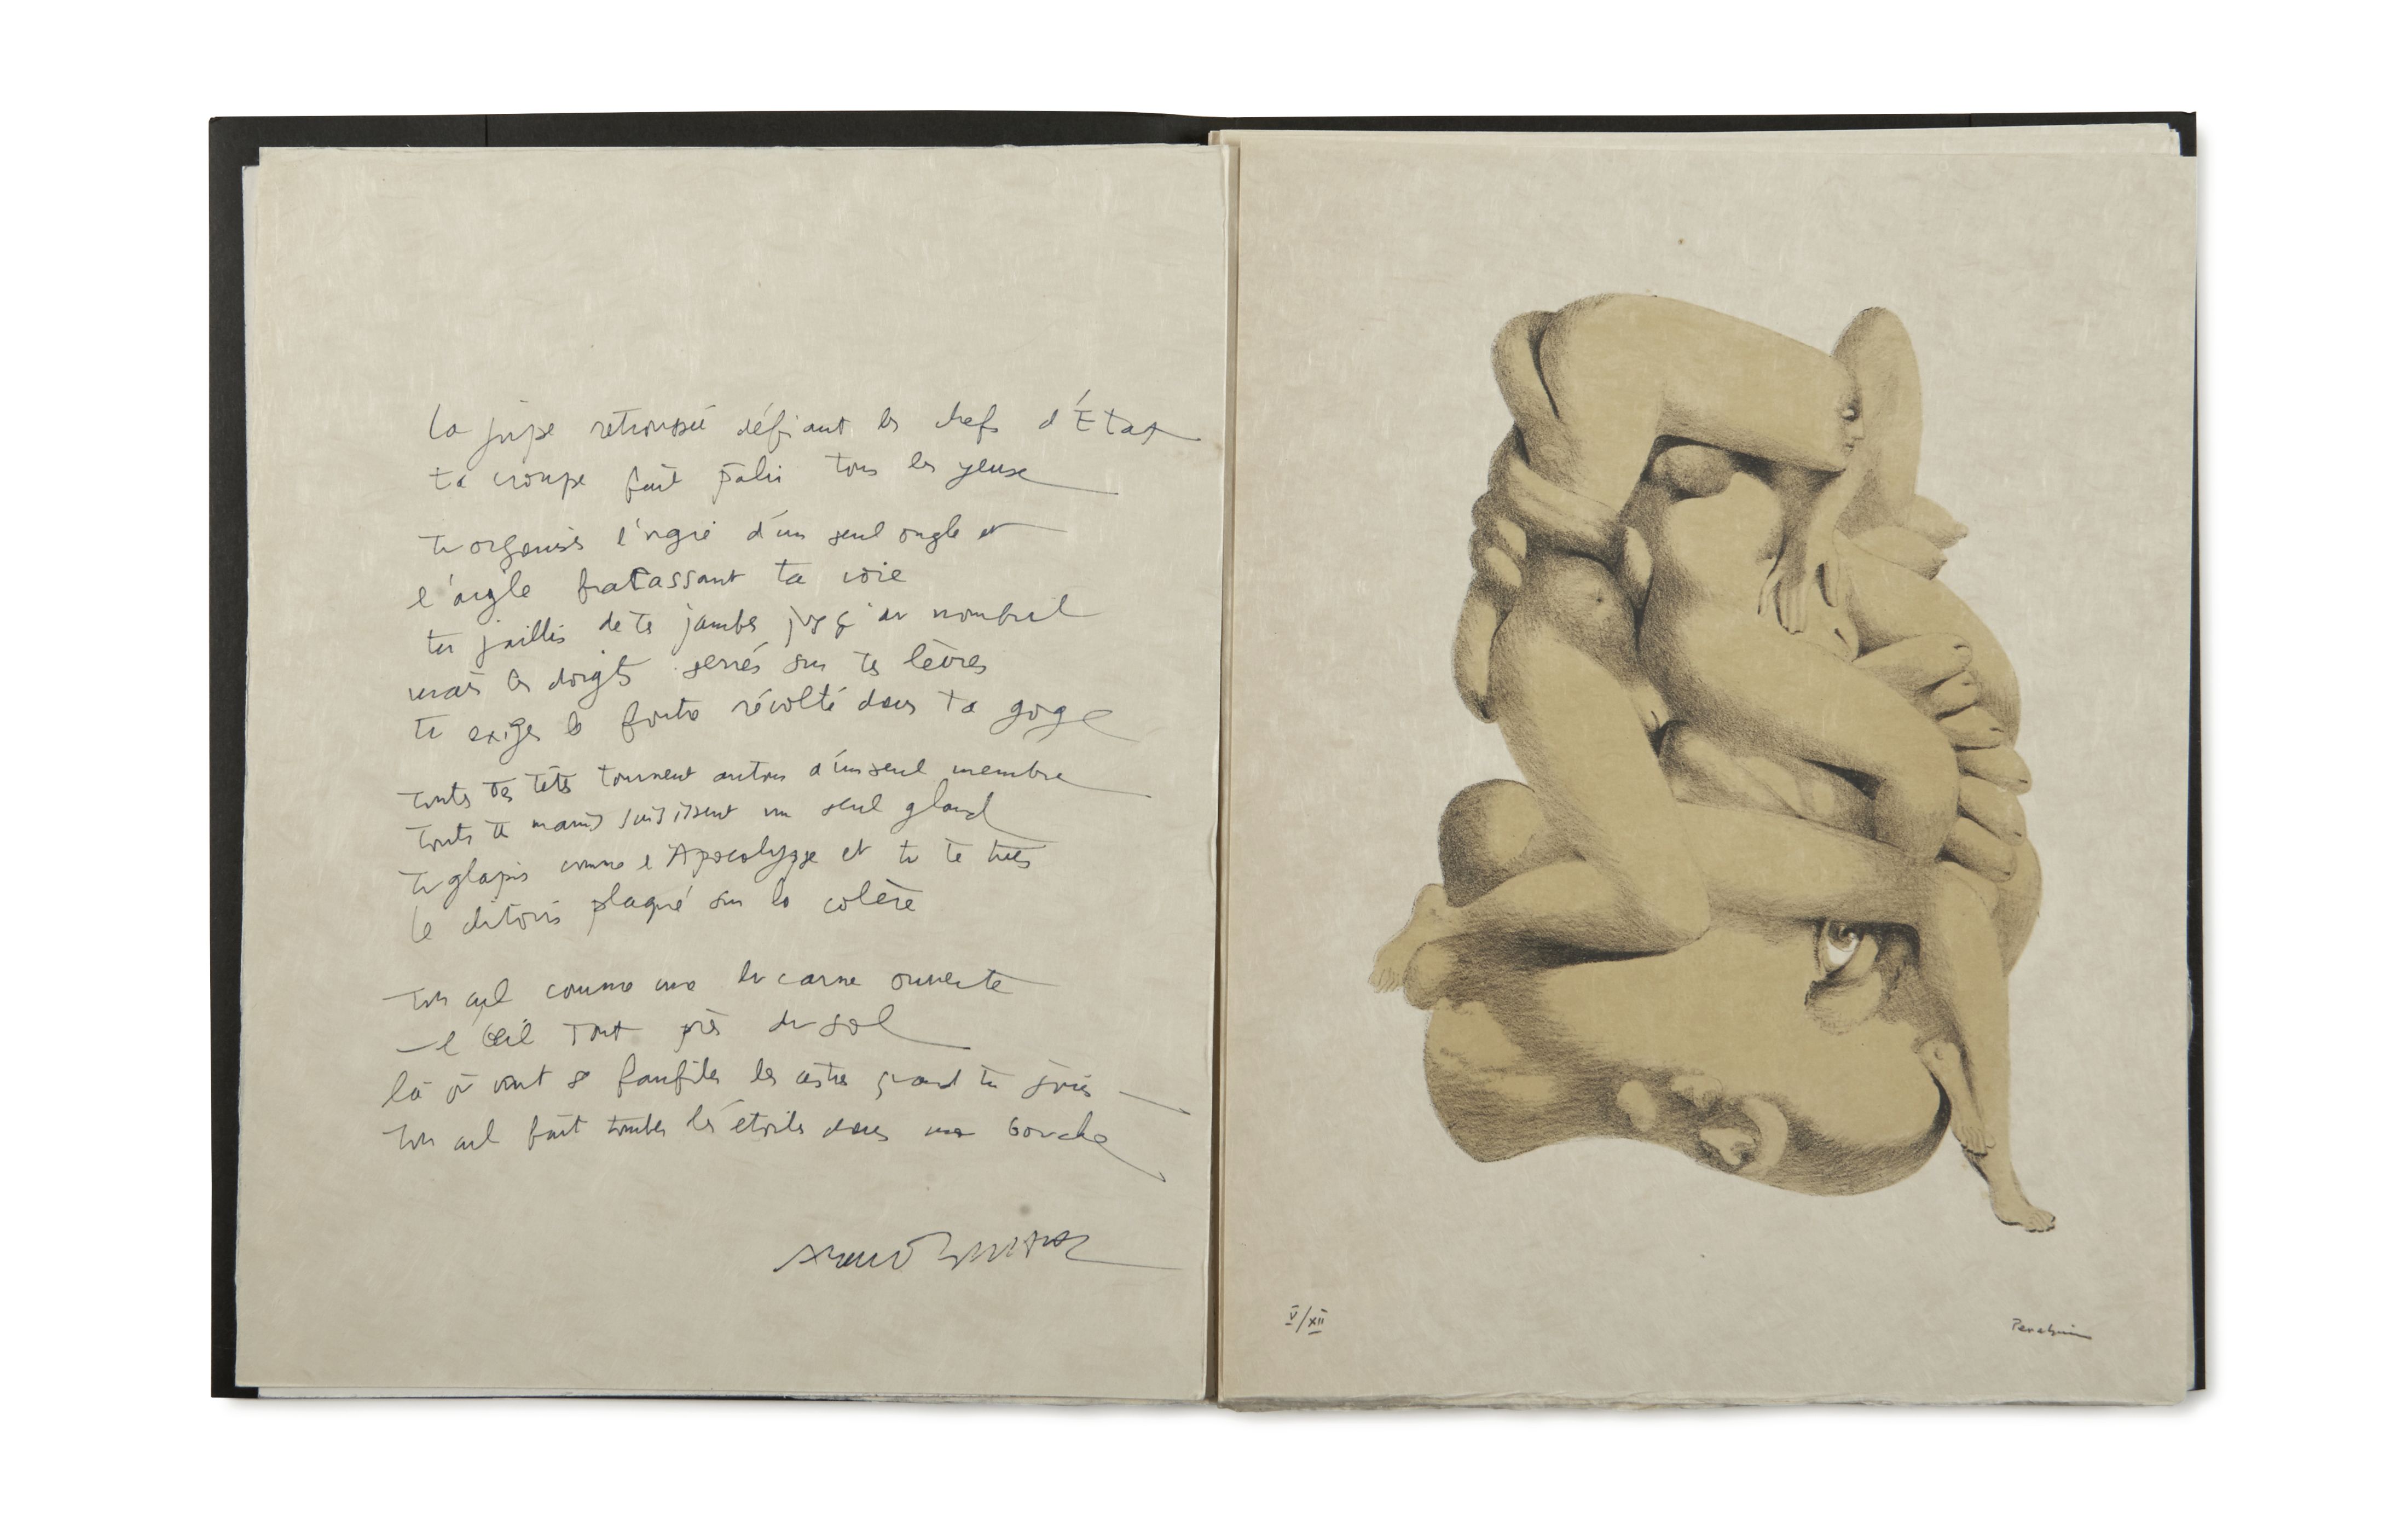 la jupe retroussée défiant les chefs d'État
ta croupe fait pâlir tous les yeux
tu organises l'orgie d'un seul ongle et
l'aigle fracassant ta voie
tu jaillis de tes jambes jusqu'au nombril
mais les doigts serrés sur tes lèvres
tu exiges le foutre révolté dans ta gorge
toutes tes têtes tournent autour d'un seul membre
toutes tes mains saisissent un seul gland
tu glapis comme l'Apocalypse et tu te tues
le clitoris plaqué sur la colère
ton œil comme une lucarne ouverte
l'Œil tout près du sol
là où vont se faufiler les astres quand tu jouis
ton œil fait tomber les étoiles dans ma bouche
V/XII